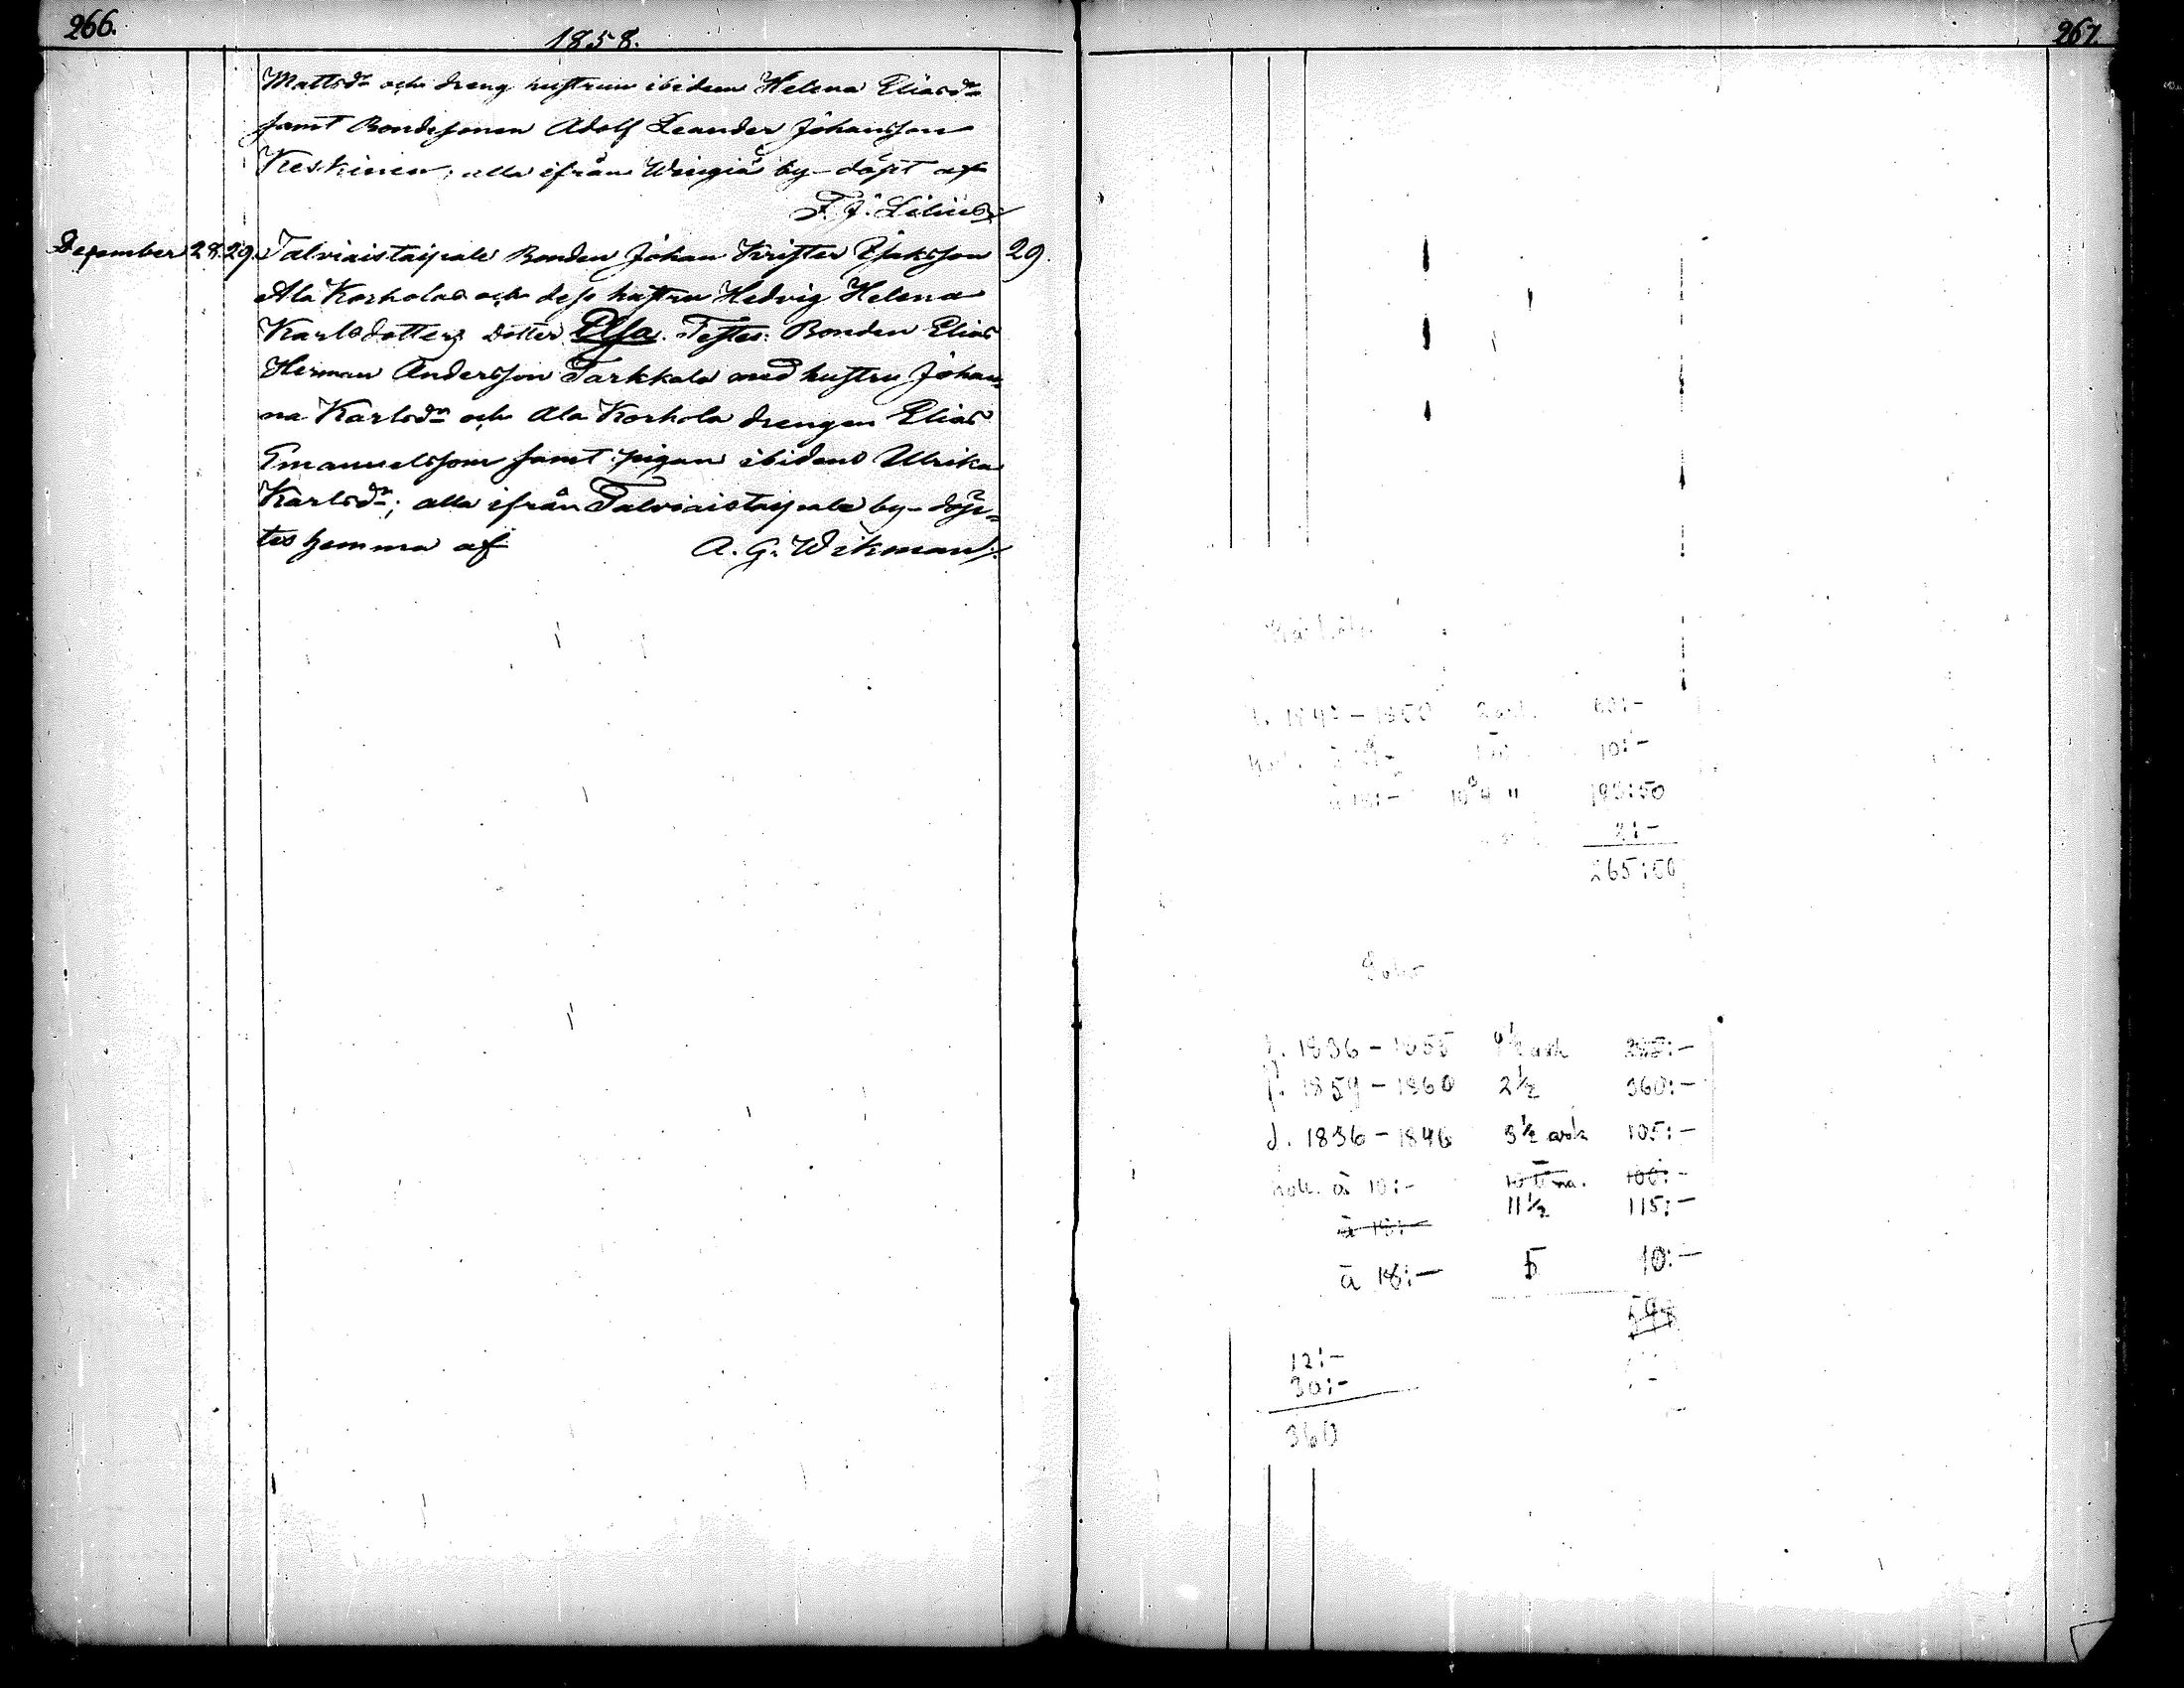 266.
1858.
Mattsdr och dreng hustrun ibidem Helena Eliasdr
samt Bondesonen Adolf Leander Johansson
Keskinen; alla ifrån Wingiä by - döpt af
F. J. Lilius
December 28. 29. Talviaistaipale Bonden Johan Krister Isaksson 29.
Ala Korholas och dess hustru Hedvig Helena
Karlsdotters dotter Elsa. Testes: Bonden Elias
Herman Andersson Tarkkala med hustru Johan-
na Karlsdr och Ala Korhola drengen Elias
Emanuelsson samt pigan ibidem Ulrika
Karlsdr; alla ifrån Talviaistaipale by - döp-
tes hemma af A. G. Wikman
267.
1850 60:-
10:-
193:50
2:-
265:50
f. 1836 - 1855
f. 1859 - 1860 2½ 360:-
d. 1836 - 1846 3½ ark 105:-
à 10:- 100:-
11½ 115:-
à 18:- 5 10:-
12:-
30:-
360